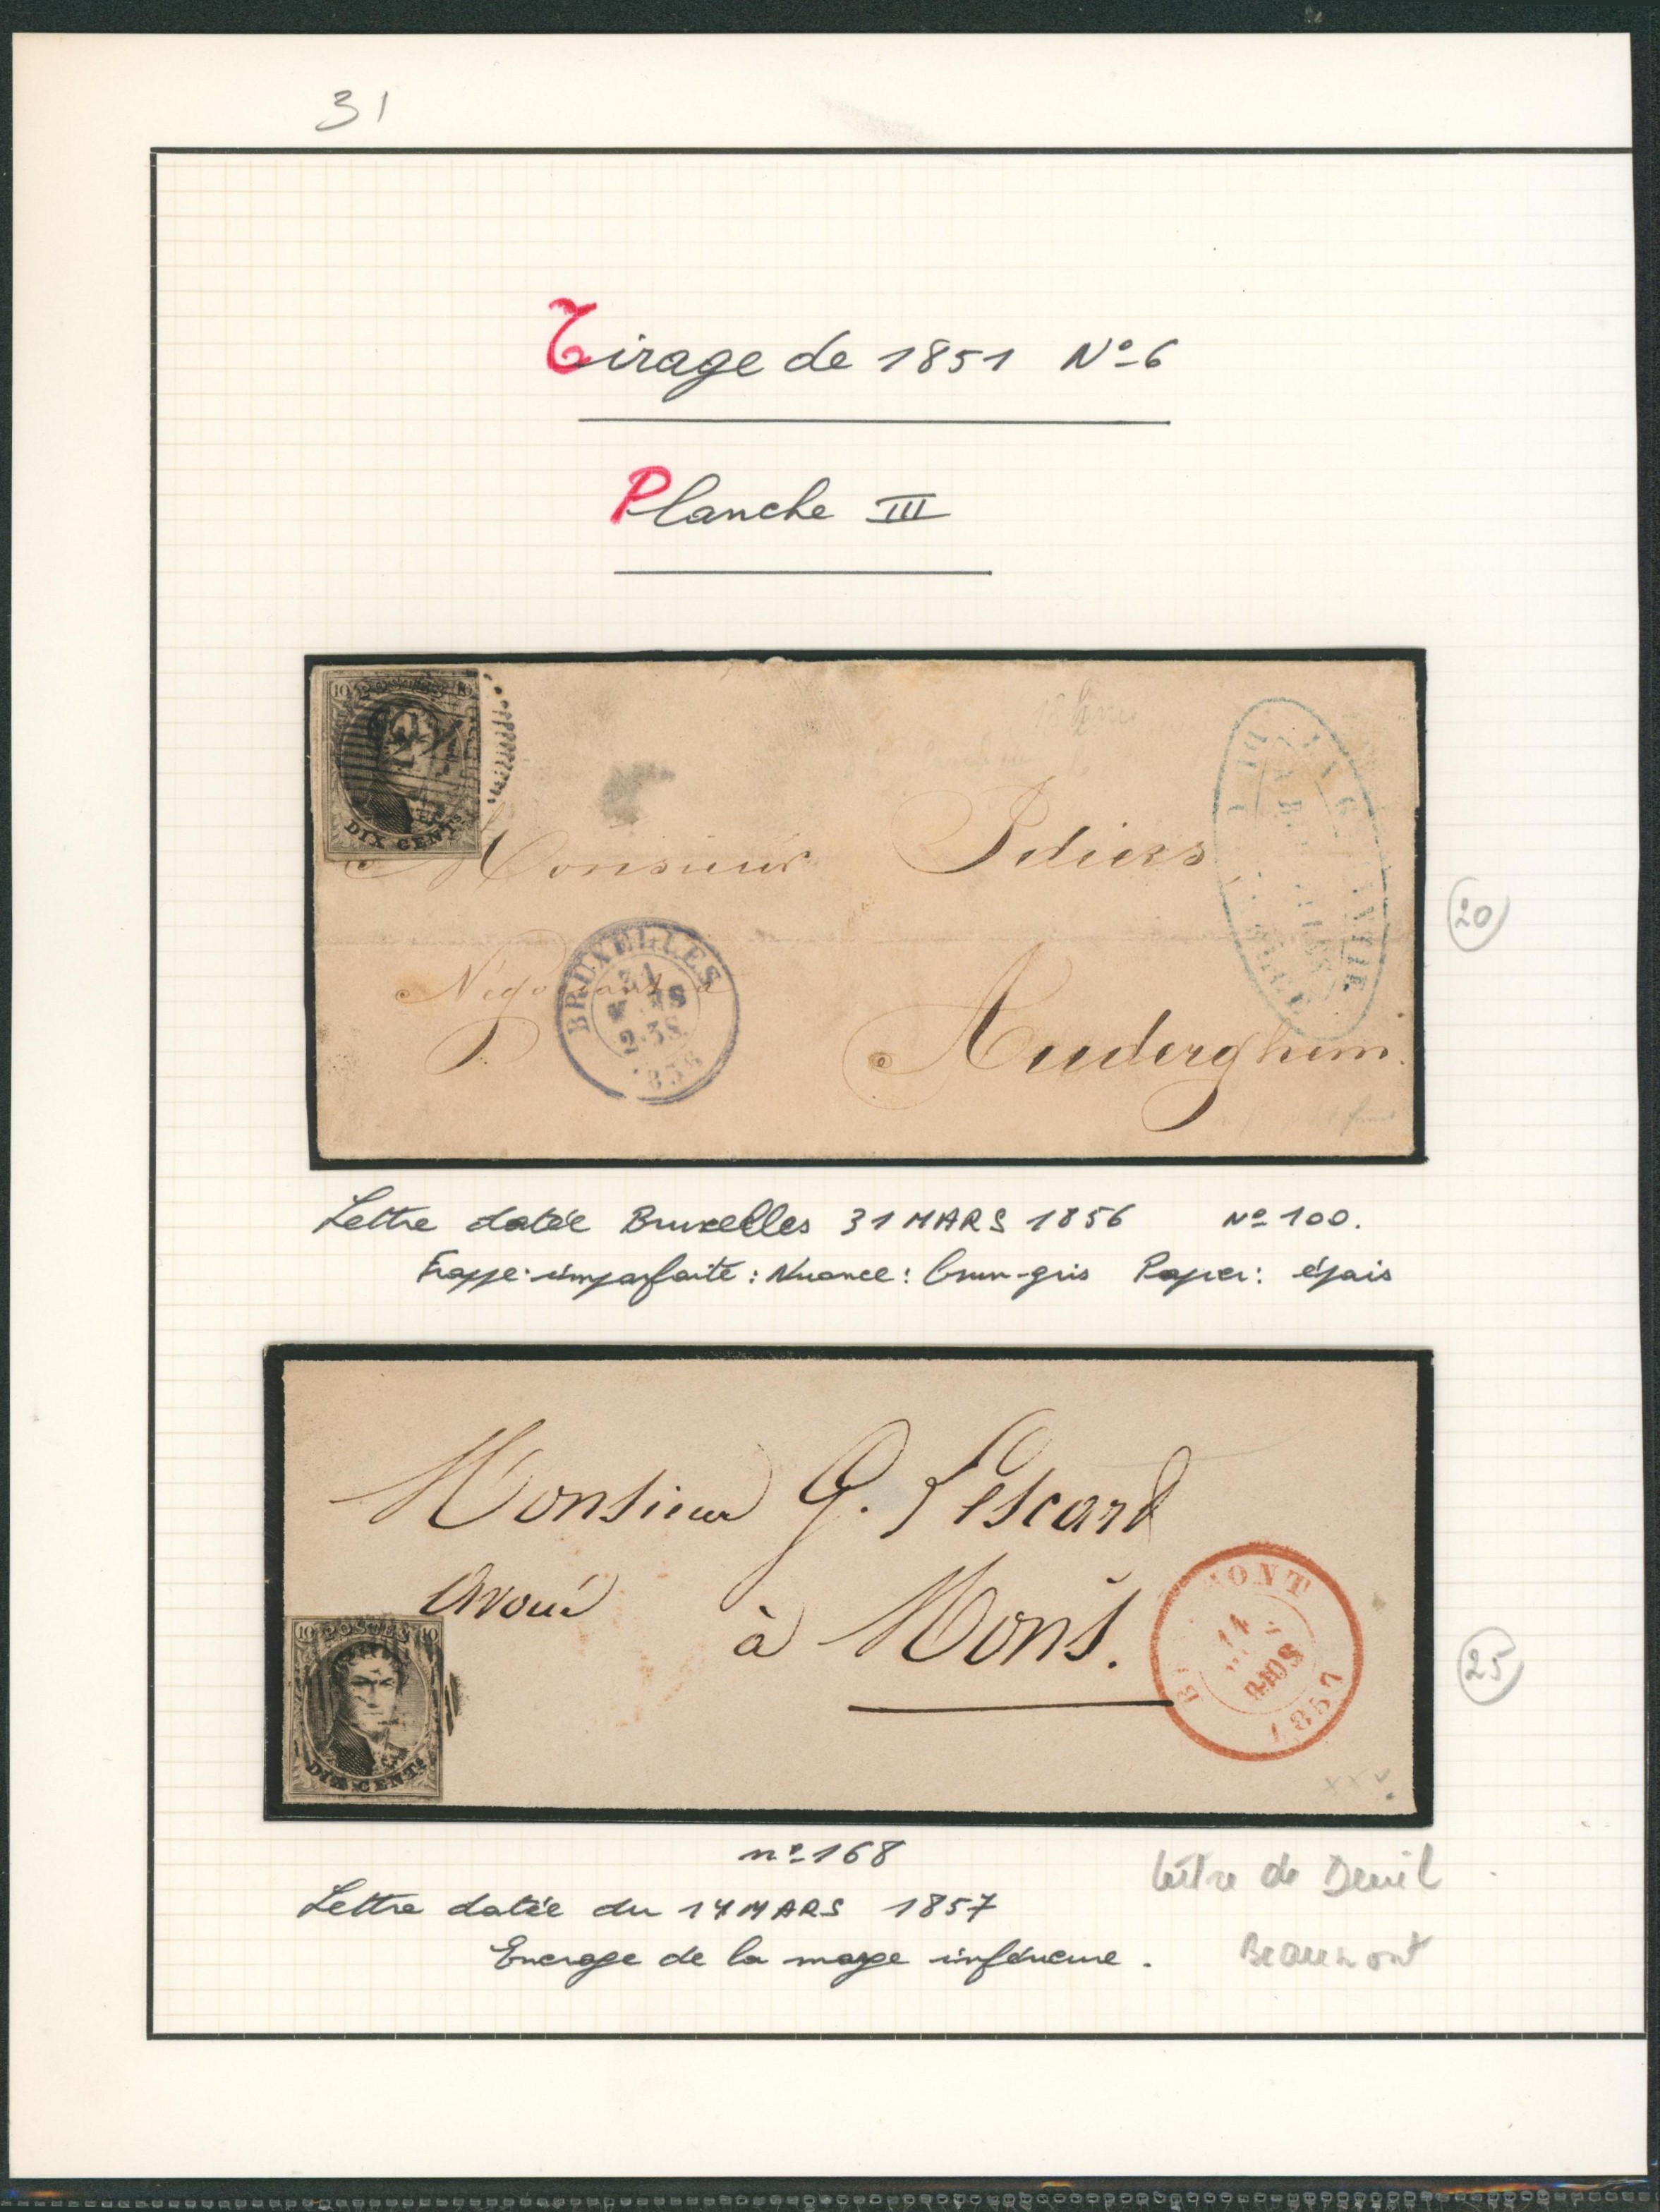 31
Tirage de 1851 Nº 6
Planche III
10
24
DIX CENTS
Monsieur
Négociant à
Auderghem
BRUXELLES
31
MARS
2-3S
1856
20
Lettre datée Bruxelles 31 MARS 1856 Nº 100.
Frappe: imparfaite: Nuance: brun-gris Papier: épais
Monsieur G. Lescard
Avoué
à Mons.
10 POSTES 10
DIX CENTS
ONT
14
1857
25
XXV
nº 168
Lettre de Deuil
Lettre datée du 14 MARS 1857
Encrage de la marge inférieure.
Beaumont